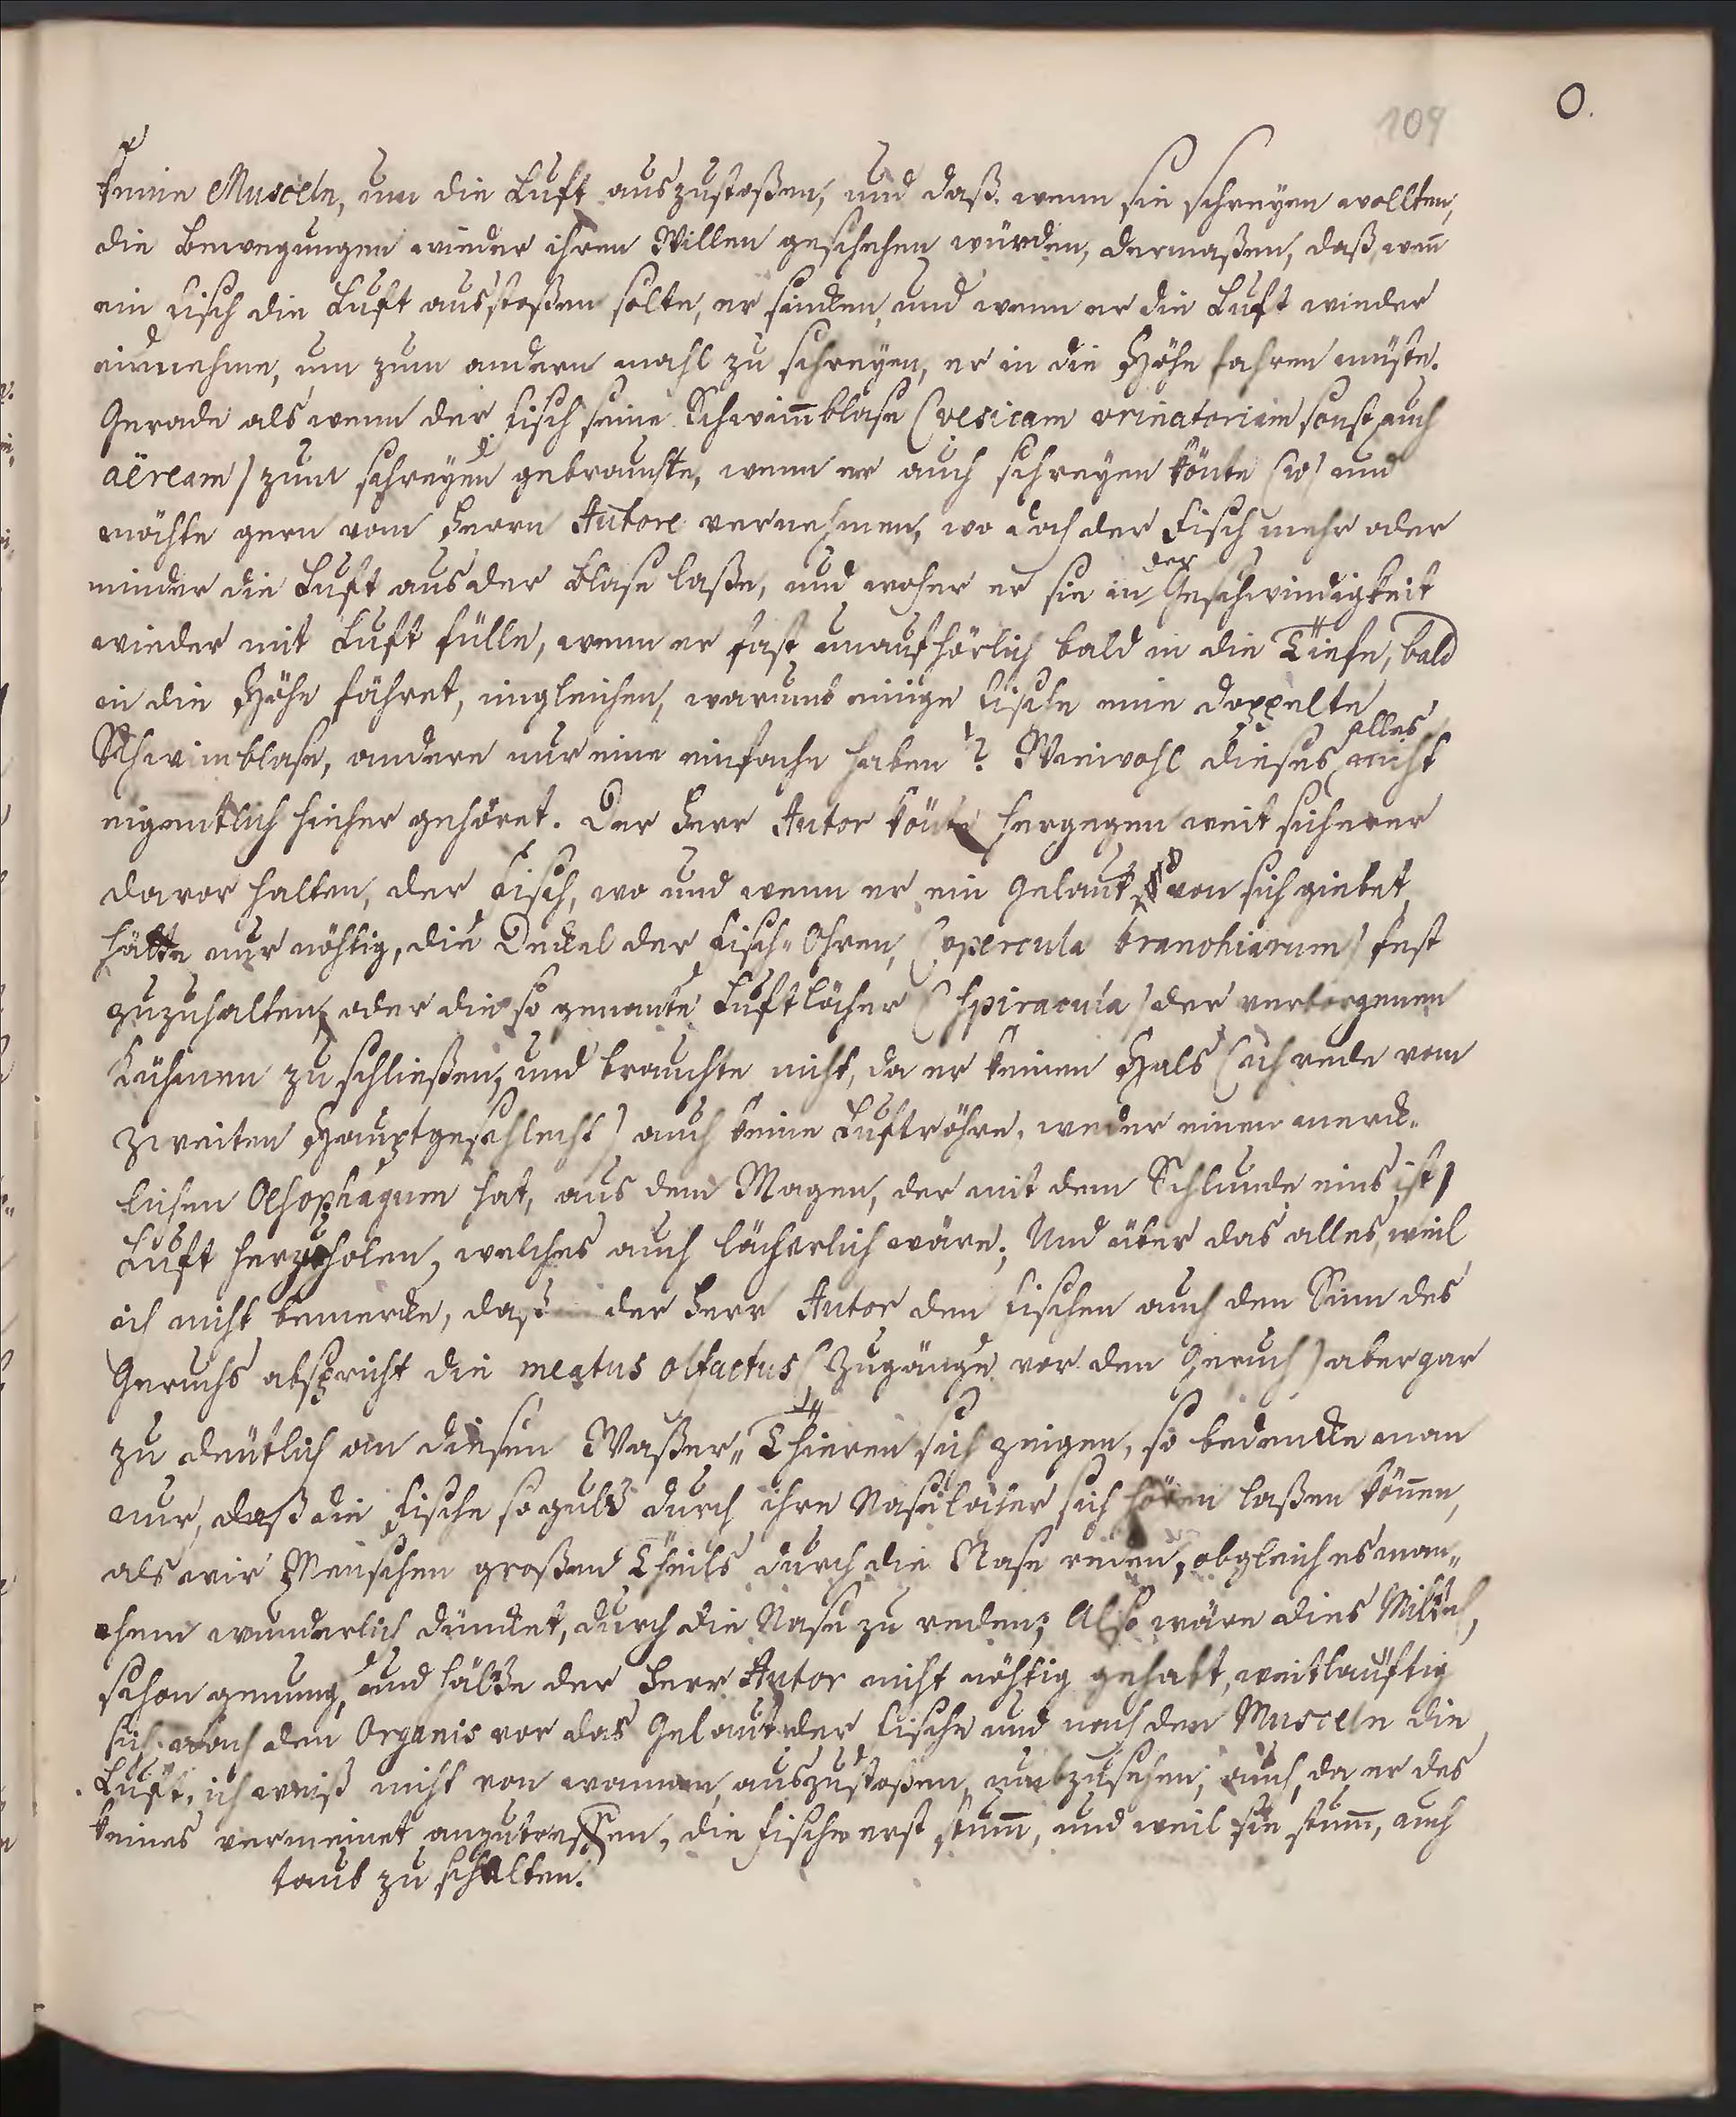 109
O.
keine Musceln, um die Luft auszustoßen, und daß wenn sie schreyen wollten,
die Bewegungen wieder ihren Willen geschehen würden, dermaßen, daß, wen̄
ein Fisch die Luft ausstoßen solte, er sincken, und wenn er die Luft wieder
einnehme, um zum andern mahl zu schreyen, er in die Höhe fahren müste.
Gerade als wenn der Fisch seine Schwim̄blase (vesicam urinatoriam sonst auch
aëream) zum schreyen gebrauchte, wenn er auch schreyen könte (w) und
möchte gern vom Herrn Autore vernehmen, wo doch der Fisch mehr oder
minder die Luft aus der Blase laße, und woher er sie in der Geschwindigkeit
wieder mit Luft fülle, wenn er fast unaufhörlich bald in die Tiefe, bald
in die Höhe fähret, imgleichen, warumb einige Fische eine doppelte
Schwimblase, andere nur eine einfache haben? Wiewohl dieses alles nicht
eigentlich hieher gehöret. Der Herr Autor könte hergegen weit sicherer
davor halten, der Fisch, wo und wenn er ein Gelaut von sich giebet,
hätte nur nöhtig, die Deckel der Fisch-Ohren, (opercula branchiarum) fest
zuzuhalten, oder die so genante Luftlöcher (Spiracula) der verborgenen
Kühmen zu schließen, und brauchte nicht, da er keinen Hals (ich rede vom
zweiten Hauptgeschlecht) auch keine Luftröhre, weder einen merck-
lichen Oesophagum hat, aus dem Magen, der mit dem Schlunde eins ist,
Luft herzuholen, welches auch lächerlich wäre; Und über das alles, weil
ich nicht bemercke, daß der Herr Autor den Fischen auch den Sinn des
Geruchs abspricht die meatus olfactus (Zugänge vor den Geruch) aber gar
zu deutlich an diesen Waßer-Thieren sich zeigen, so bedencke man
nur, daß die Fische so guht durch ihre Naselöcher sich hören laßen kön̄en,
als wir Menschen großen Theils durch die Nase reden, obgleich es man-
chem wunderlich düncket, durch die Nase zu reden; Also wäre dies Mittel,
schon genung, und hätte der Herr Autor nicht nöhtig gehabt, weitläuftig
sich nach den Organis vor das Gelaut der Fische und nach den Musceln die
Luft, ich weiß nicht von wannen, auszustoßen, umbzusehen, auch, da er des
keines vermeinet anzutreffen, die Fische erst stum̄, und weil sie stum̄, auch
taub zu schelten.